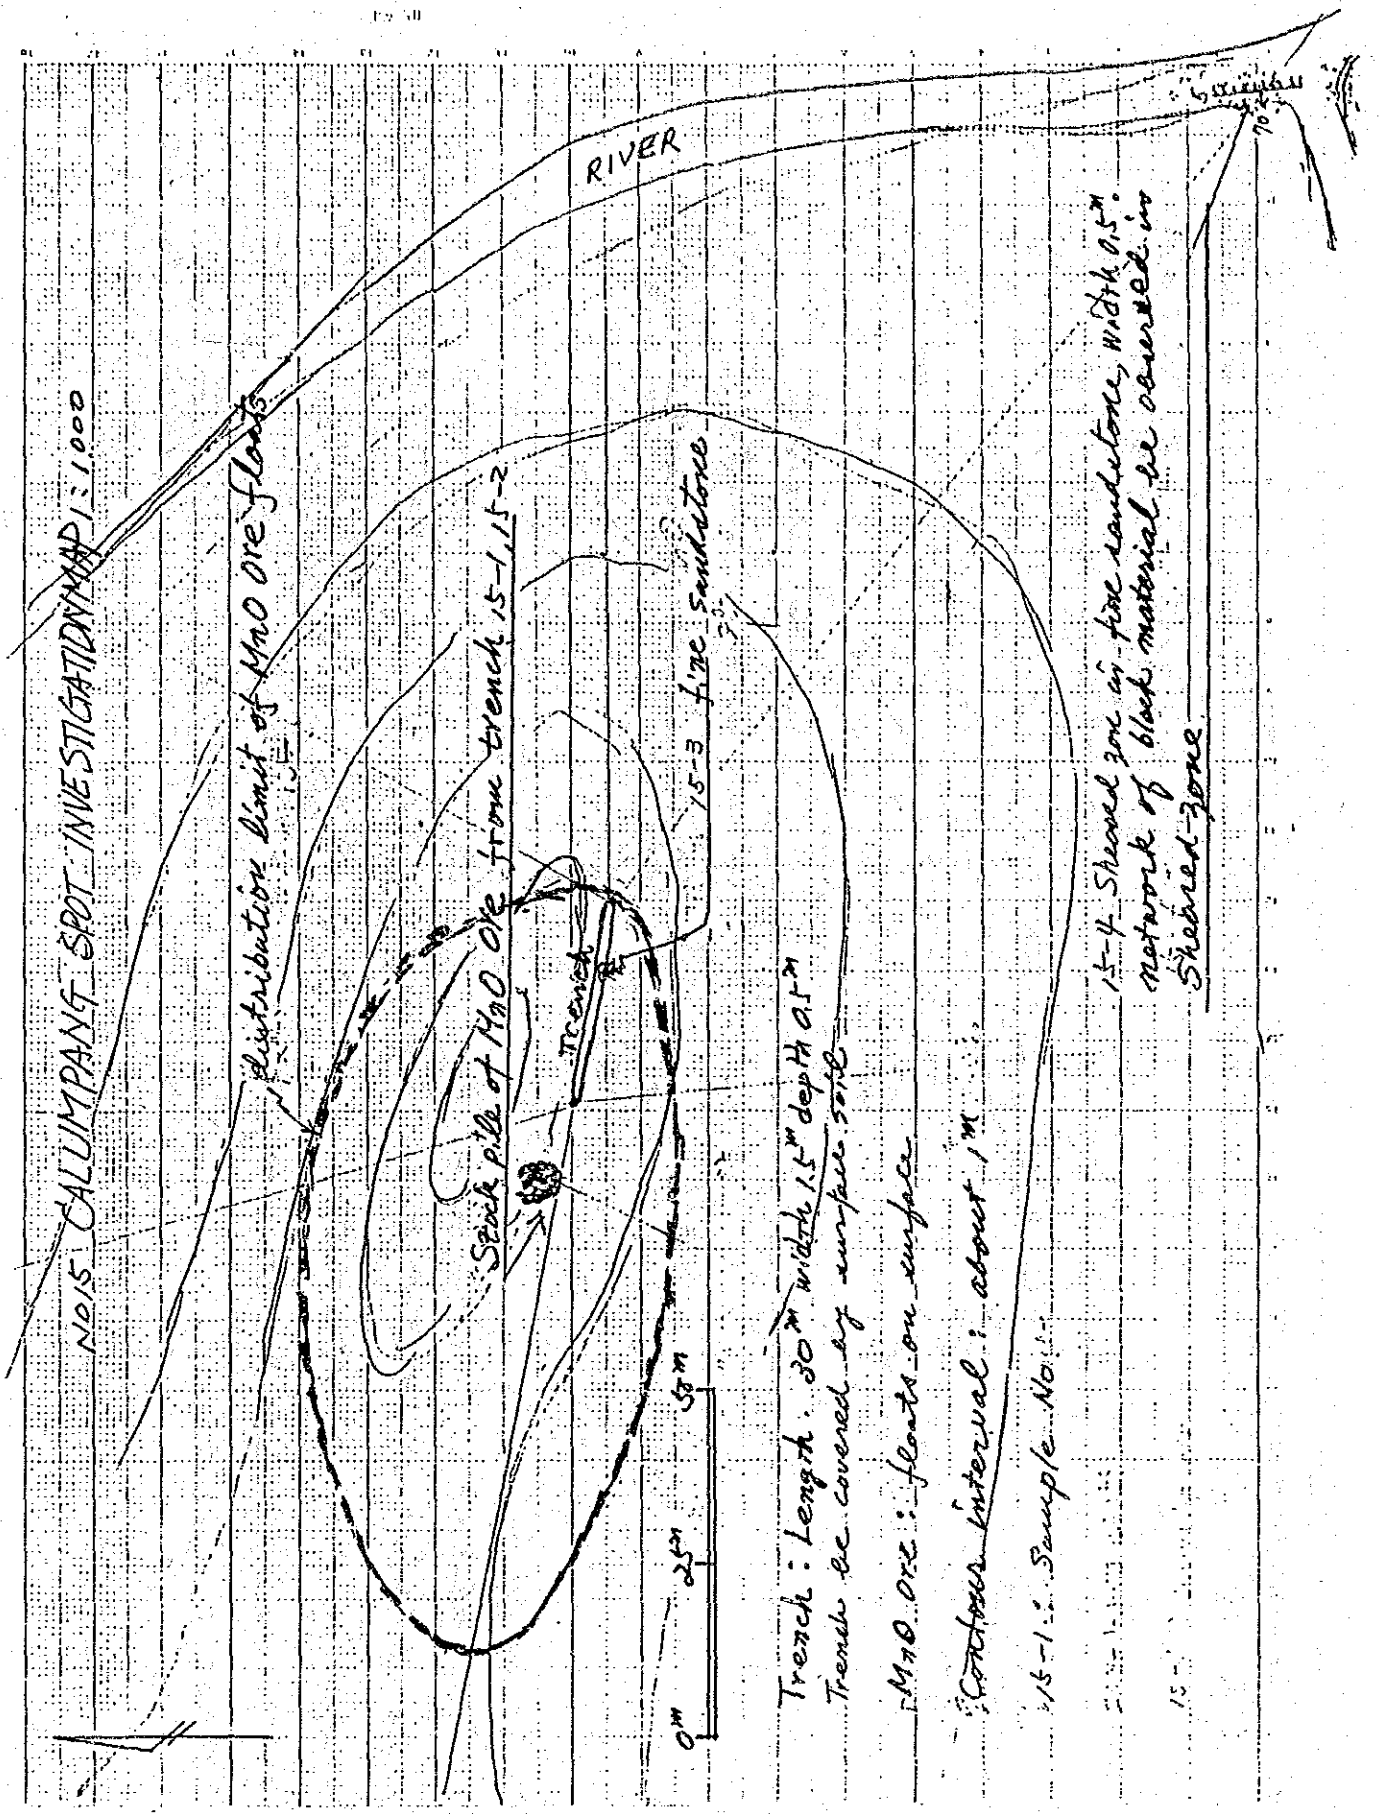 NO15 CALUMPANG SPOT INVESTIGATION MAP 1:1,000
distribution limit of MnO ore floats
RIVER
Stock pile of MnO Ore from trench 15-1, 15-2
Trench
15-3 fine sandstone
0m 25m 50m
Trench : Length. 30m width 1.5m depth 0.5m
Trench be covered by surface soil
MnO Ore : floats on surface
Contour interval : about 1m
15-1 : Sample No.
15-4 Sheared zone in fine sandstone, width 0.5m.
network of black material be observed in
Sheared-zone
70